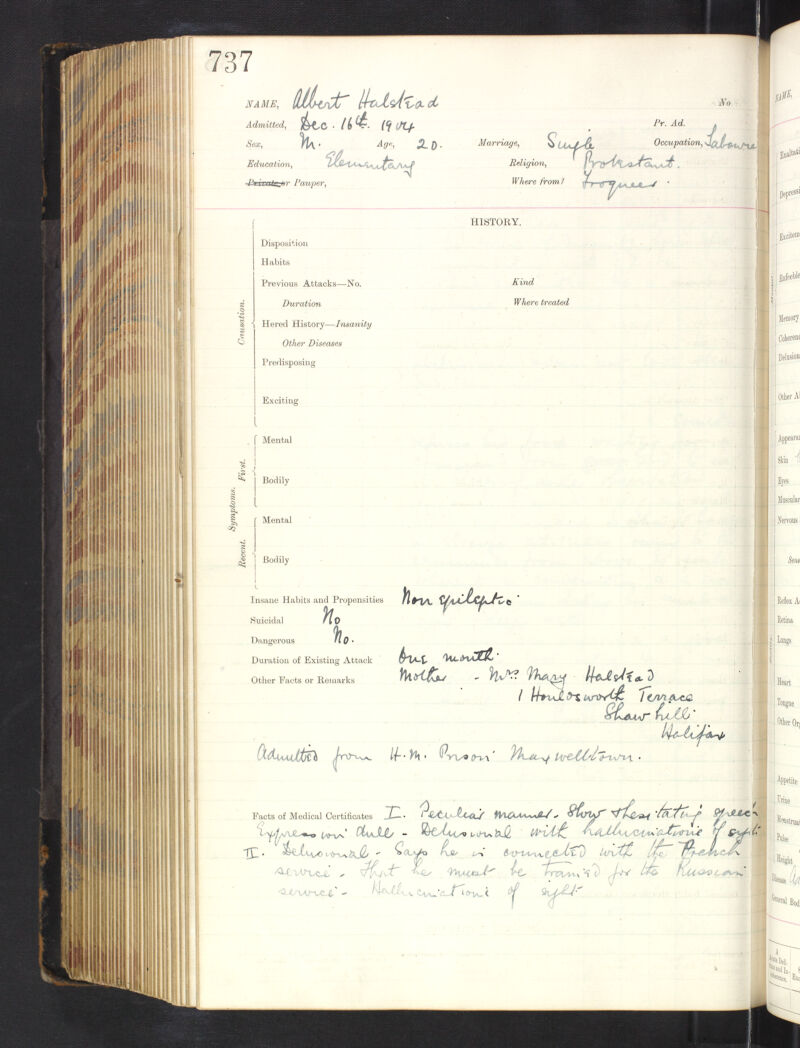 737
NAME, Albert Halstead No
Admitted, Dec. 16th. 1904 Pr. Ad.
Sex, M. Age, 20. Marriage, Single Occupation, Laboure
Education, Elementary Religion, Protestant.
Private or Pauper, Where from? Troqueer.
HISTORY.
Disposition
Habits
Previous Attacks—No. Kind
Duration Where treated
Hered History—Insanity
Other Diseases
Predisposing
Exciting
Causation.
Mental
Bodily
First.
Symptoms.
Mental
Bodily
Recent.
Insane Habits and Propensities Non epileptic.
Suicidal No
Dangerous No.
Duration of Existing Attack One month.
Other Facts or Remarks Mother - Mrs Mary Halstead
1 Houldsworth Terrace
Shaw hill
Halifax
Admitted from H.M. Prison Maxwelltown.
Facts of Medical Certificates I. Peculiar manner. Slow & hesitating speech
Expression dull - Delusional with hallucinations of sight
II. Delusional - Says he is connected with the French
service - that he must be trained for the Russian
service - Hallucinations of sight
NAME,
Memory
Delusion
Skin
Eyes
Muscular
Nervous
Retina
Lungs
Heart
Tongue
Appetite
Urine
Pulse
Height